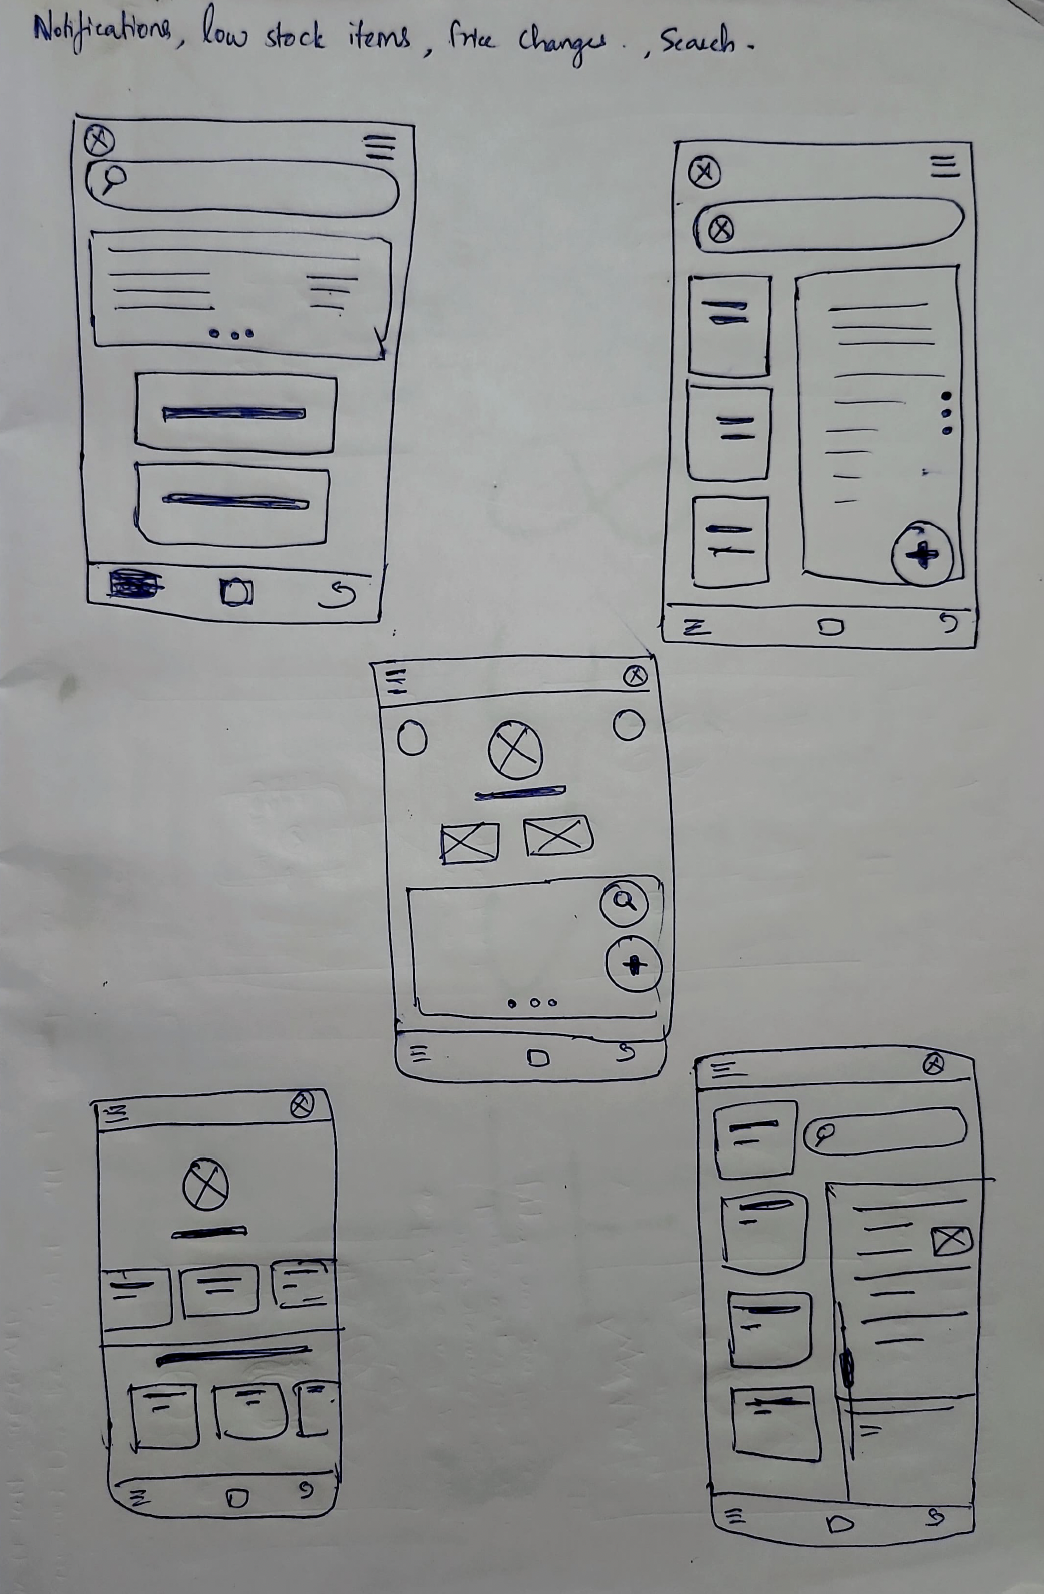 Notifications, low stock items, Price changes. , Search.